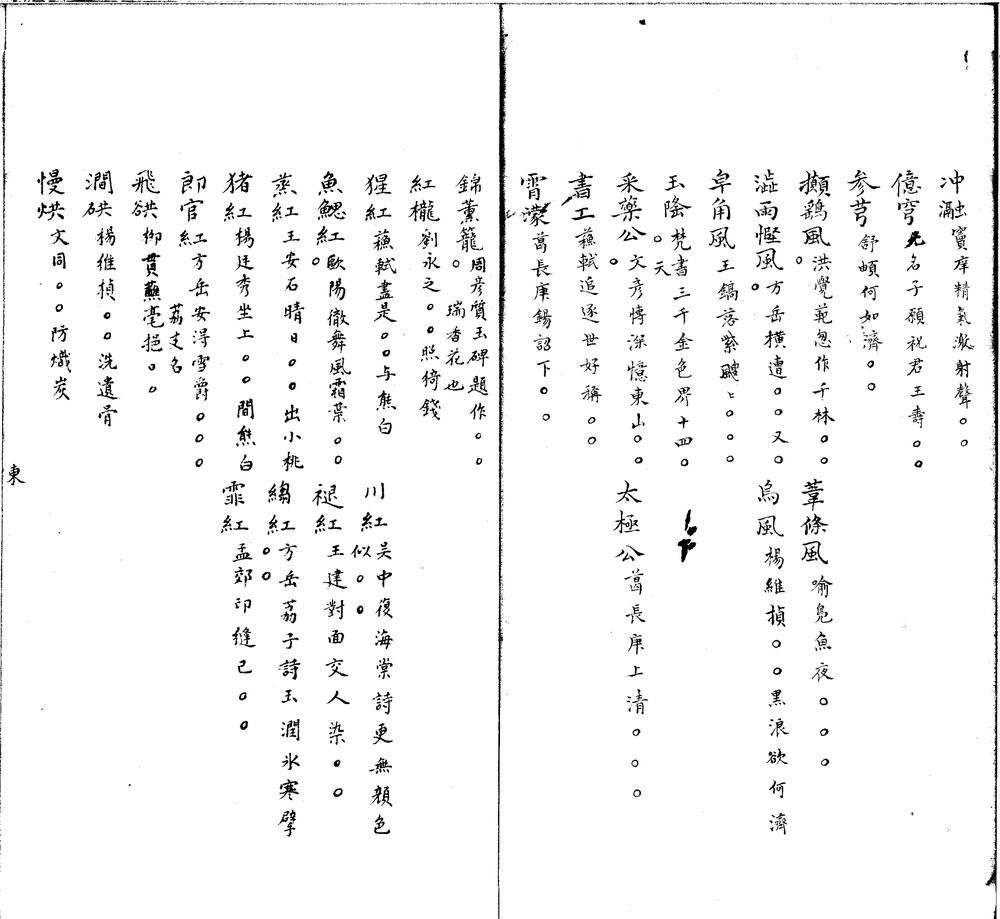 冲瀜竇庠精氣激射聲○○
億穹元名子願祝君王壽○○
參芎舒頔何如濟○○
攧鷂風○洪覺範忽作千林○○ 葦條風喻凫魚夜○○○○
澁雨慳風○方岳橫遭○○又○ 烏風楊維楨○○黑浪欲何濟
皁角風王鎬落紫颼○○○
玉隆○梵書三千金色界十四○
天
采藥公○文彥博深憶東山○○ 太極公葛長庚上清○○○
書工蘓軾追逐世好稱○○
霄濛葛長庚錫詔下○○
錦薰籠○周彥質玉碑題作○○
瑞香花也
紅櫳劉永之○○照綺錢
猩紅蘓軾盡是○○与熊白 川紅吳中復海棠詩更無顔色
似○○
魚鰓紅○歐陽徹舞風霜葉○○ 褪紅王建對面交人染○○
蒸紅王安石晴日○○○出小桃 縐紅○○方岳荔子詩玉潤氷寒擘
猪紅楊廷秀坐上○○間熊白 霏紅孟郊印縫已○○
郎官紅方岳安得雪爵○○○
荔支名
飛谼柳貫蘸毫挹○○
澗硔楊維楨○○洗遺骨
慢烘文同○○防熾炭
東